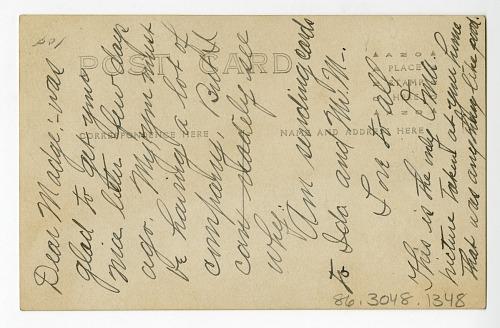 POST CARD
CORRESPONDENCE HERE
NAME AND ADDRESS HERE
AZO
PLACE
STAMP
HERE
AZO
Dear Madge:- was
glad to get your
nice letter few days
ago. My you must
be having a lot of
company. But I
can readily see
why.
Am sending cards
to Ida and Mr. W-.
Love to all
This is the only
picture taken at your home
that was anything like good.
86.3048.1348